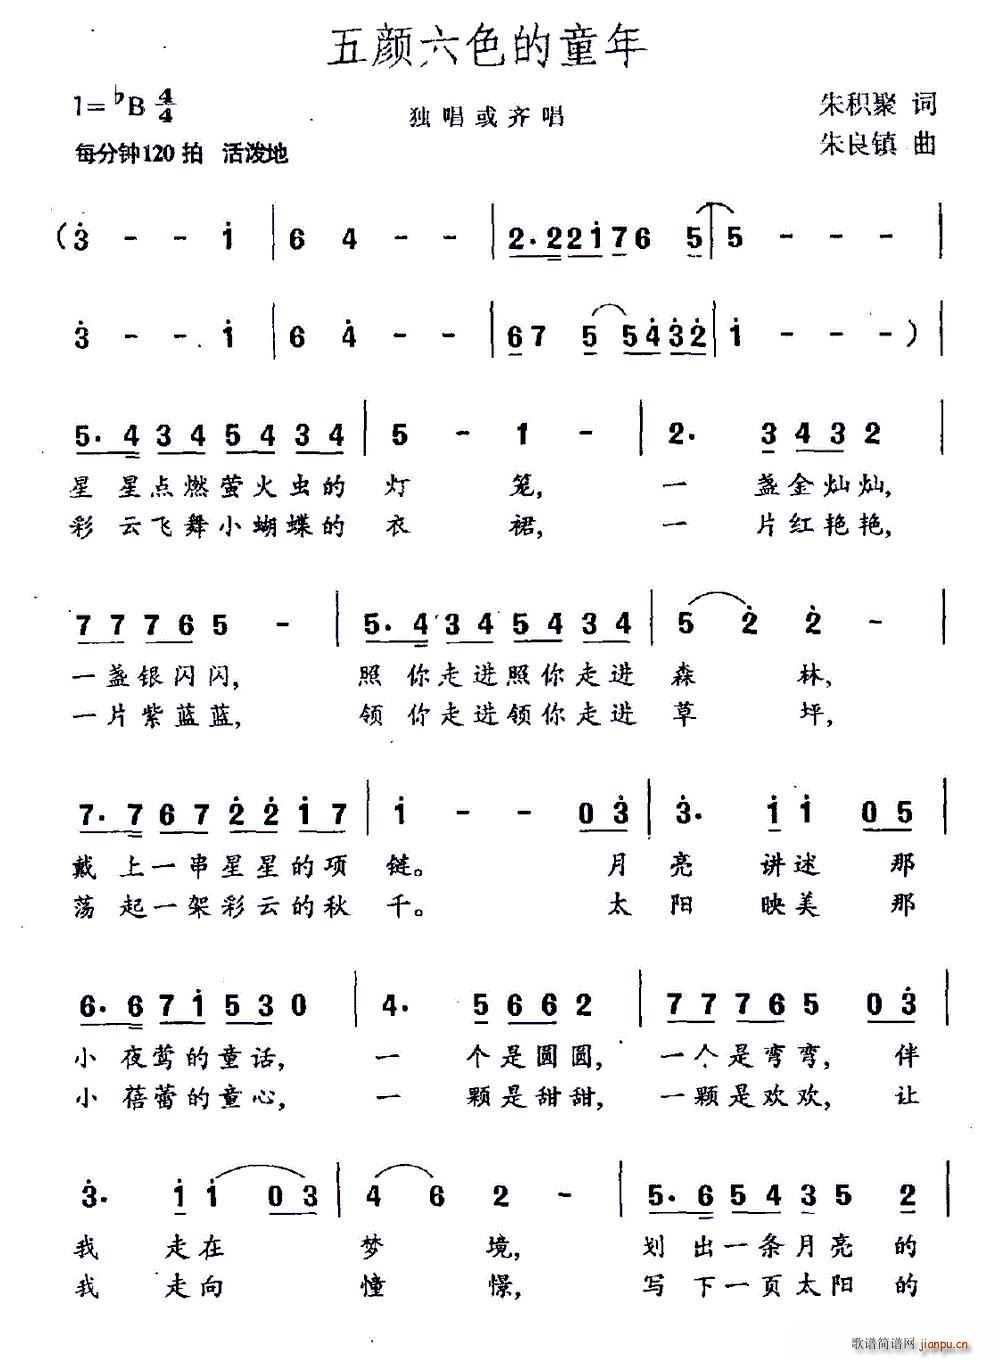 五颜六色的童年
1=♭B 4/4
独唱或齐唱
朱积聚 词
每分钟120拍 活泼地
朱良镇 曲
(3̇ - - 1̇ | 6 4 - - | 2.22176 5 | 5 - - - |
3 - - 1̇ | 6 4̇ - - | 67 5 54̇3̇2̇ | 1̇ - - - )|
5. 4 3 4 5 4 3 4 | 5 - 1 - | 2. 3 4 3 2 |
星 星点燃萤火虫的 灯 笼, 一 盏金灿灿,
彩 云飞舞小蝴蝶的 衣 裙, 一 片红艳艳,
7 7 7 6 5 - | 5. 4 3 4 5 4 3 4 | 5 2̇ 2̇ - |
一盏银闪闪, 照 你走进照你走进 森 林,
一片紫蓝蓝, 领 你走进领你走进 草 坪,
7. 7 6 7 2̇ 2̇ 1̇ 7 | 1̇ - - 0 3̇ | 3̇. 1̇ 1̇ 0 5 |
戴 上一串星星的项 链。 月 亮 讲述 那
荡 起一架彩云的秋 千。 太 阳 映美 那
6. 6 7 1̇ 5 3 0 | 4. 5 6 6 2 | 7 7 7 6 5 0 3̇ |
小 夜莺的童话, 一 个是圆圆, 一个是弯弯, 伴
小 蓓蕾的童心, 一 颗是甜甜, 一颗是欢欢, 让
3̇. 1̇ 1̇ 0 3 | 4 6 2 - | 5. 6 5 4 3 5 2 |
我 走在 梦 境, 划 出一条月亮的
我 走向 憧 憬, 写 下一页太阳的
歌谱简谱网 jianpu.cn